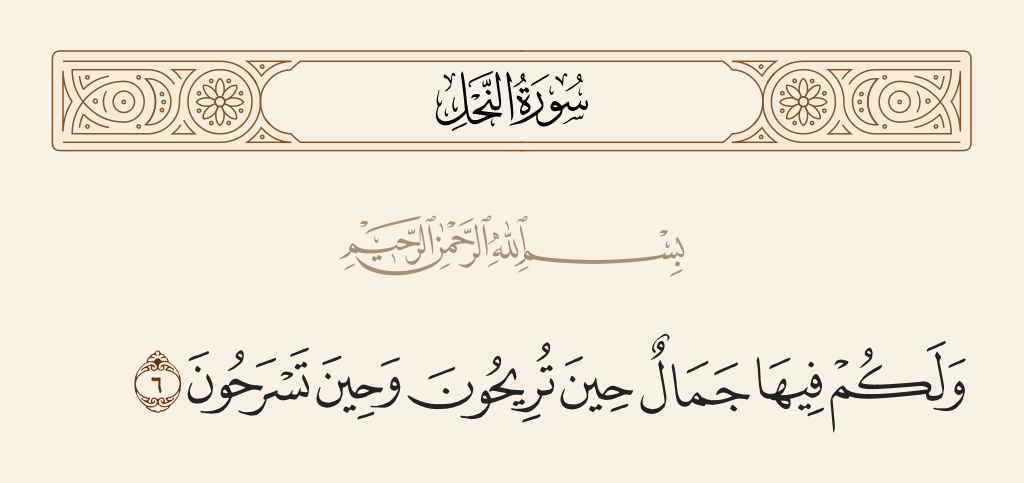 سُورَةُ النَّحْلِ
بِسْمِ ٱللَّهِ ٱلرَّحْمَٰنِ ٱلرَّحِيمِ
وَلَكُمْ فِيهَا جَمَالٌ حِينَ تُرِيحُونَ وَحِينَ تَسْرَحُونَ ٦